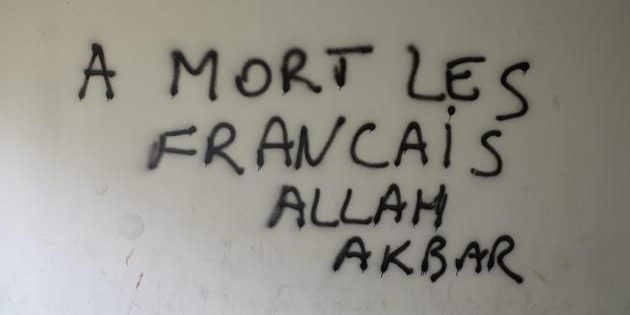 A MORT LES
FRANCAİS
ALLAH
AKBAR